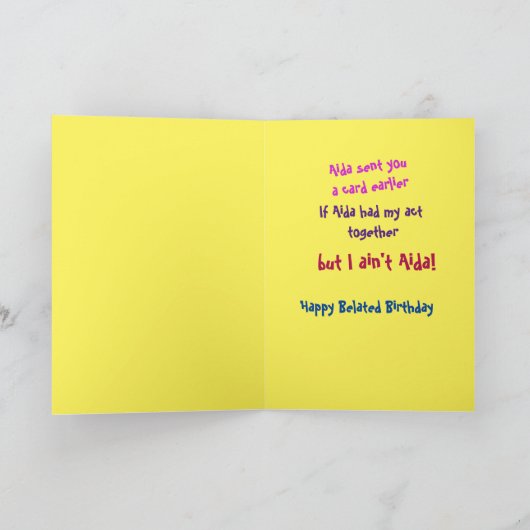 Aida sent you
a card earlier
If Aida had my act
together
but I ain't Aida!
Happy Belated Birthday